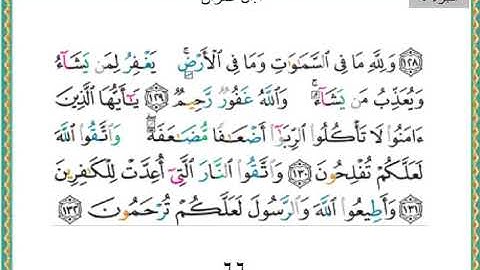 ﴿١٢٨﴾ وَلِلَّهِ مَا فِى السَّمَٰوَٰتِ وَمَا فِى الْأَرْضِ ۚ يَغْفِرُ لِمَن يَشَآءُ
وَيُعَذِّبُ مَن يَشَآءُ ۚ وَاللَّهُ غَفُورٌ رَّحِيمٌ ﴿١٢٩﴾ يَٰٓأَيُّهَا الَّذِينَ
ءَامَنُوا لَا تَأْكُلُوا الرِّبَوٰٓا أَضْعَٰفًا مُّضَٰعَفَةً ۖ وَاتَّقُوا اللَّهَ
لَعَلَّكُمْ تُفْلِحُونَ ﴿١٣٠﴾ وَاتَّقُوا النَّارَ الَّتِىٓ أُعِدَّتْ لِلْكَٰفِرِينَ
﴿١٣١﴾ وَأَطِيعُوا اللَّهَ وَالرَّسُولَ لَعَلَّكُمْ تُرْحَمُونَ ﴿١٣٢﴾
٦٦